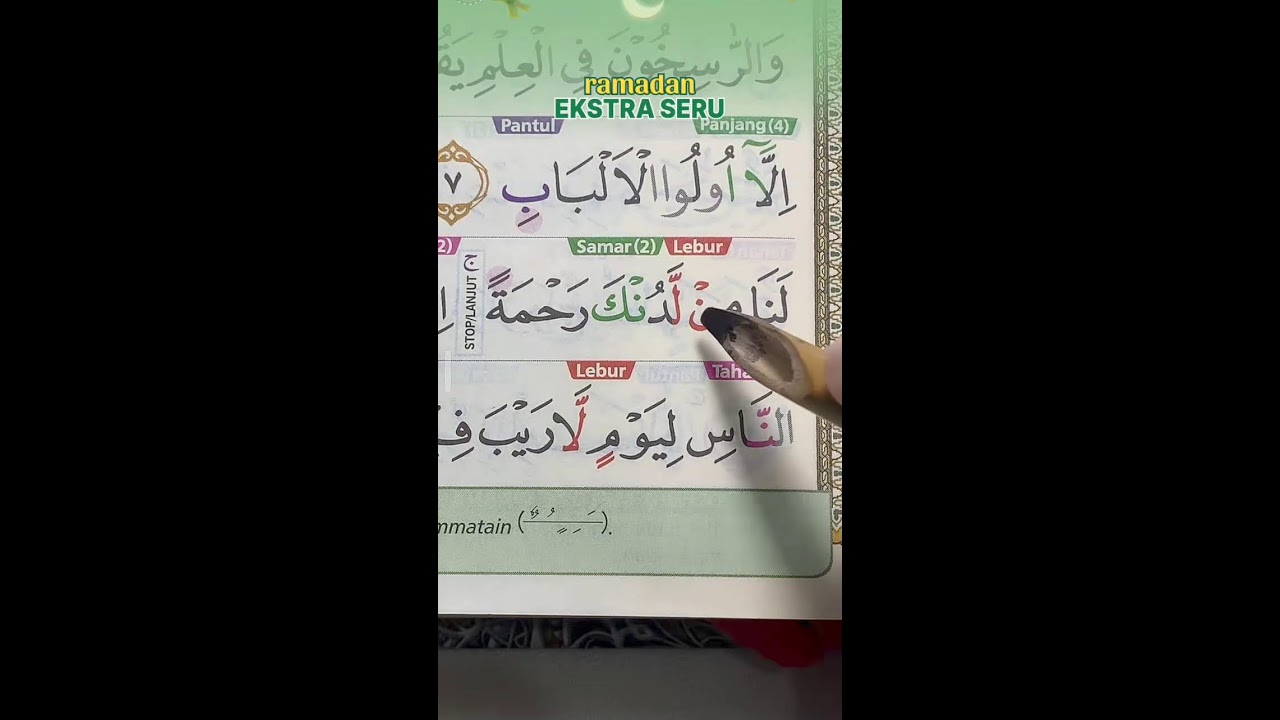 وَالرّٰسِخُوْنَ فِى الْعِلْمِ
ramadan
EKSTRA SERU
Pantul Panjang(4)
اِلَّآ اُولُوا الْاَلْبَابِ ٧
2) Samar(2) Lebur
لَنَا مِنْ لَّدُنْكَ رَحْمَةً ۚ
STOP/LANJUT ج
Lebur
النَّاسِ لِيَوْمٍ لَّا رَيْبَ
mmatain (ـَـِـُـًـٍـٌ).